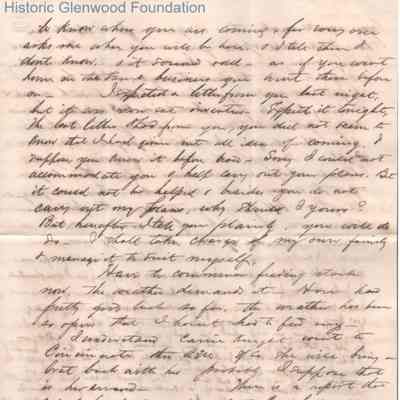 Historic Glenwood Foundation
to know when you are coming, for every one
asks me when you will be here. & I tell them I
don't know. & it sounds odd - as if you went
home on the same business you went there before
on - I expected a letter from you last night,
but it did not come. Expect it tonight,
The last letter I had from you, you did not seem to
know that I had given out all idea of coming. I
suppose you know it before now - Sorry I could not
accommodate you & help carry out your plans. But
it could not be helped & besides you do not
carry out my plans, why should I yours?
But hereafter I tell you plainly, you will do
so. I shall take charge of my own family
& manage it to suit myself.
Have to commence feeding stock
now, the weather demands it. Have had
pretty good luck so far, the weather has been
so open that I havent had to feed any
I understand Carrie went to
Cincinnati this A.M. She will bring
back with her probably I suppose that
is her errand - There is a report that